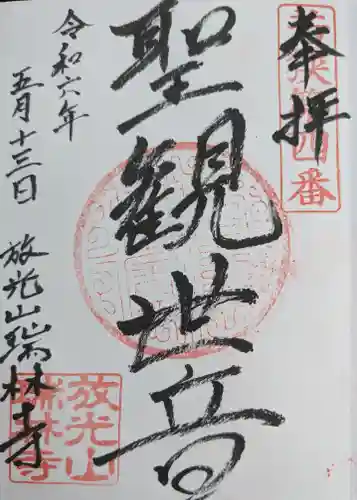 奉拝
聖観世音
令和六年
五月十三日
放光山瑞林寺
放光山
瑞林寺